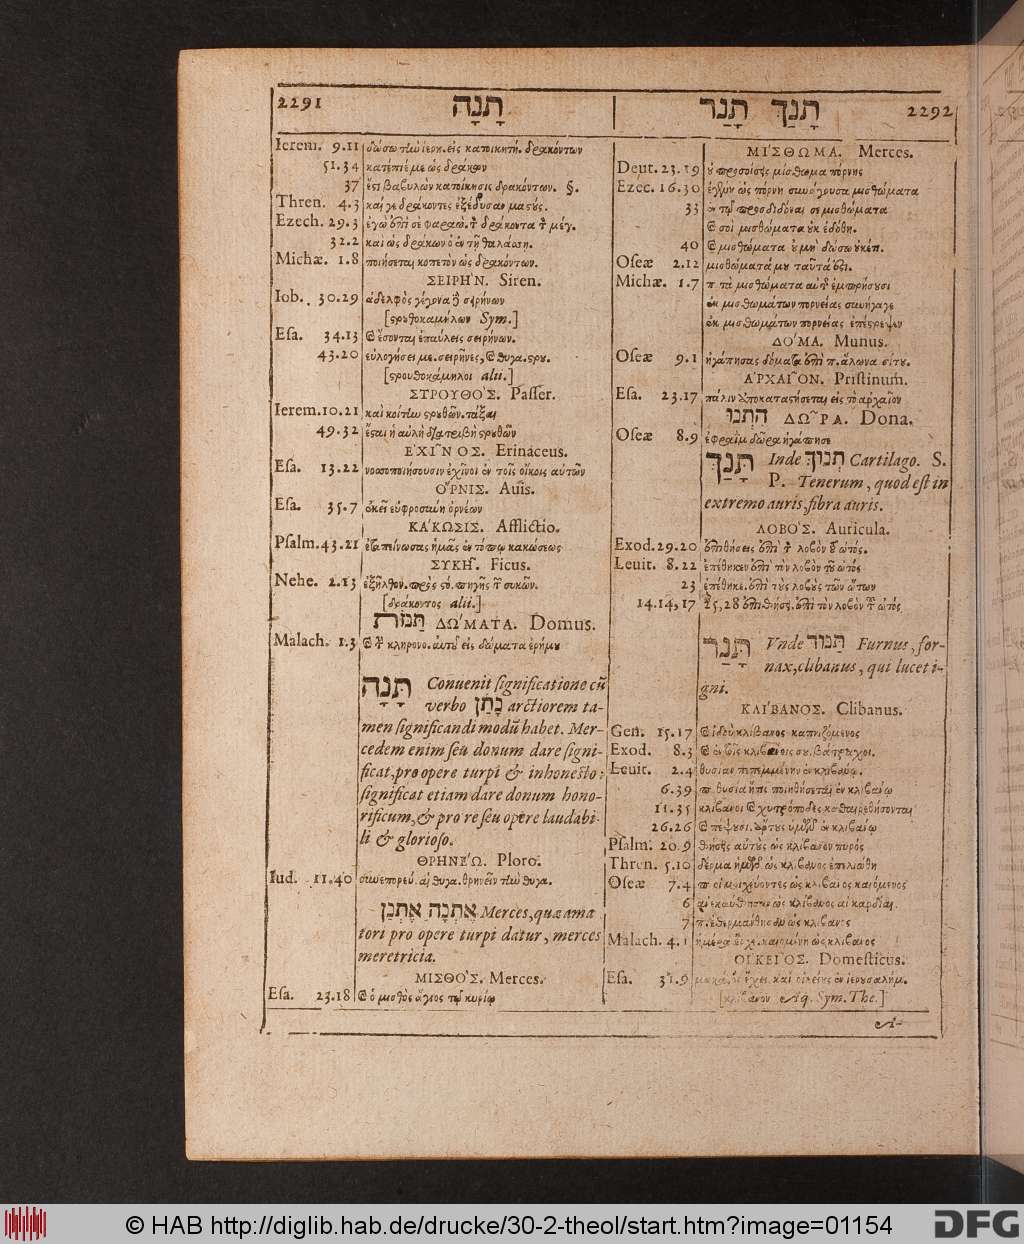 2291 תָנָה
Ierem. 9.11 δώσω τὴν ἱερ. εἰς κατοικητή. δρακόντων
51.34 κατέπιέ με ὡς δράκων
37 ἔσται βαβυλὼν κατοίκησις δρακόντων. §.
Thren. 4.3 καί γε δράκοντες ἐξέδυσαν μαστούς.
Ezech. 29.3 ἐγὼ ἐπὶ σὲ φαραὼ. τὸν δράκοντα τὸν μέγ.
32.2 καὶ ὡς δράκων ὁ ἐν τῇ θαλάσσῃ.
Michæ. 1.8 ποιήσεται κοπετὸν ὡς δρακόντων.
ΣΕΙΡΗ'Ν. Siren.
Iob. 30.29 ἀδελφὸς γέγονα σειρήνων
[στρουθοκαμήλων Sym.]
Esa. 34.13 καὶ ἔσονται ἐπαύλεις σειρήνων.
43.20 εὐλογήσει με. σειρῆνες, καὶ θυγα. στρου.
[στρουθοκάμηλοι alii.]
ΣΤΡΟΥΘΟ'Σ. Passer.
Ierem. 10.21 καὶ κοίτην στρουθῶν. τάξαι
49.32 ἔσται ἡ αὐλὴ διατριβὴ στρουθῶν
ΕΧΙ῀ΝΟΣ. Erinaceus.
Esa. 13.22 νοσσοποιήσουσιν ἐχῖνοι ἐν τοῖς οἴκοις αὐτῶν
ΟΡΝΙΣ. Auis.
Esa. 35.7 ἐκεῖ εὐφροσύνη ὀρνέων
ΚΑ'ΚΩΣΙΣ. Afflictio.
Psalm. 43.21 ἐταπείνωσας ἡμᾶς ἐν τόπῳ κακώσεως
ΣΥΚΗ῀. Ficus.
Nehe. 2.13 ἐξῆλθον. πρὸς στό. πηγῆς τῶν συκῶν.
[δράκοντος alii.]
תַנוֹת ΔΩ'ΜΑΤΑ. Domus.
Malach. 1.3 καὶ τὴν κληρονο. αὐτοῦ εἰς δώματα ἐρήμου
תָּנָה Conuenit significatione cũ
verbo נָתַן arctiorem ta-
men significandi modũ habet. Mer-
cedem enim seu donum dare signi-
ficat, pro opere turpi & inhonesto:
significat etiam dare donum hono-
rificum, & pro re seu opere laudabi-
li & glorioso.
ΘΡΗΝΕ'Ω. Ploro.
Iud. 11.40 συνεπορεύ. αἱ θυγα. θρηνεῖν τὴν θυγα.
אֶתְנָה אֶתְנַן Merces, quæ ama
tori pro opere turpi datur, merces
meretricia.
ΜΙΣΘΟ'Σ. Merces.
Esa. 23.18 καὶ ὁ μισθὸς ἅγιος τῷ κυρίῳ
תָנַךְ תָנַר 2292
ΜΙ'ΣΘΩΜΑ. Merces.
Deut. 23.19 οὐ προσοίσεις μίσθωμα πόρνης
Ezec. 16.30 ὡς πόρνη συνάγουσα μισθώματα
33 προσδιδόναι σε μισθώματα
καὶ σοὶ μισθώματα οὐκ ἐδόθη.
40 καὶ μισθώματα οὐ μὴ δώσω οὐκέτι.
Oseæ 2.12 μισθώματά μου ταῦτά ἐστι.
Michæ. 1.7 π τὰ μισθώματα αὐτῆς ἐμπρήσουσι
ἐκ μισθωμάτων πορνείας συνήγαγε
ἐκ μισθωμάτων πορνείας ἐπέστρεψεν
ΔΟ'ΜΑ. Munus.
Oseæ 9.1 ἠγάπησας δόματα ἐπὶ π. ἅλωνα σίτου.
ΑΡΧΑΙ῀ΟΝ. Pristinum.
Esa. 23.17 πάλιν ἀποκαταστήσεται εἰς τὸ ἀρχαῖον
הִתְנוּ ΔΩ῀ΡΑ. Dona.
Oseæ 8.9 ἐφραῒμ δῶρα ἠγάπησε
תָּנַךְ Inde תְּנוּךְ Cartilago. S.
P. Tenerum, quod est in
extremo auris, fibra auris.
ΛΟΒΟ'Σ. Auricula.
Exod. 29.20 ἐπιθήσεις ἐπὶ τὸν λοβὸν τοῦ ὠτός.
Leuit. 8.22 ἐπέθηκεν ἐπὶ τὸν λοβὸν τοῦ ὠτὸς
23 ἐπέθηκε. ἐπὶ τοὺς λοβοὺς τῶν ὤτων
14.14,17 25,28 ἐπιθήσει. ἐπὶ τὸν λοβὸν τοῦ ὠτός
תָּנַר Vnde תַּנּוּר Furnus, for-
nax, clibanus, qui lucet i-
gni.
ΚΛΙ'ΒΑΝΟΣ. Clibanus.
Gen. 15.17 καὶ ἰδοὺ κλίβανος καπνιζόμενος
Exod. 8.3 καὶ ἐν τοῖς κλιβάνοις σου. βάτραχοι.
Leuit. 2.4 θυσίαν πεπεμμένην ἐν κλιβάνῳ.
6.39 π. θυσία ἥτις ποιηθήσεται ἐν κλιβάνῳ
11.35 κλίβανοι καὶ χυτρόποδες καθαιρεθήσονται
26.26 καὶ πέψουσι. ἄρτους ὑμῶν ἐν κλιβάνῳ
Psalm. 20.9 θήσεις αὐτοὺς ὡς κλίβανον πυρός
Thren. 5.10 δέρμα ἡμῶν ὡς κλίβανος ἐπελιώθη
Oseæ 7.4 π. οἱ μοιχεύοντες ὡς κλίβανος καιόμενος
6 ἀνεκαύθησαν ὡς κλίβανος αἱ καρδίαι.
7 π. ἐθερμάνθησαν ὡς κλίβανος
Malach. 4.1 ἡμέρα ἔρχε. καιομένη ὡς κλίβανος
ΟΙΚΕΙ῀ΟΣ. Domesticus.
Esa. 31.9 μακά. ὃς ἔχει. καὶ οἰκείους ἐν ἱερουσαλήμ.
[κλίβανον Aq. Sym. The.]
A-
© HAB http://diglib.hab.de/drucke/30-2-theol/start.htm?image=01154
DFG